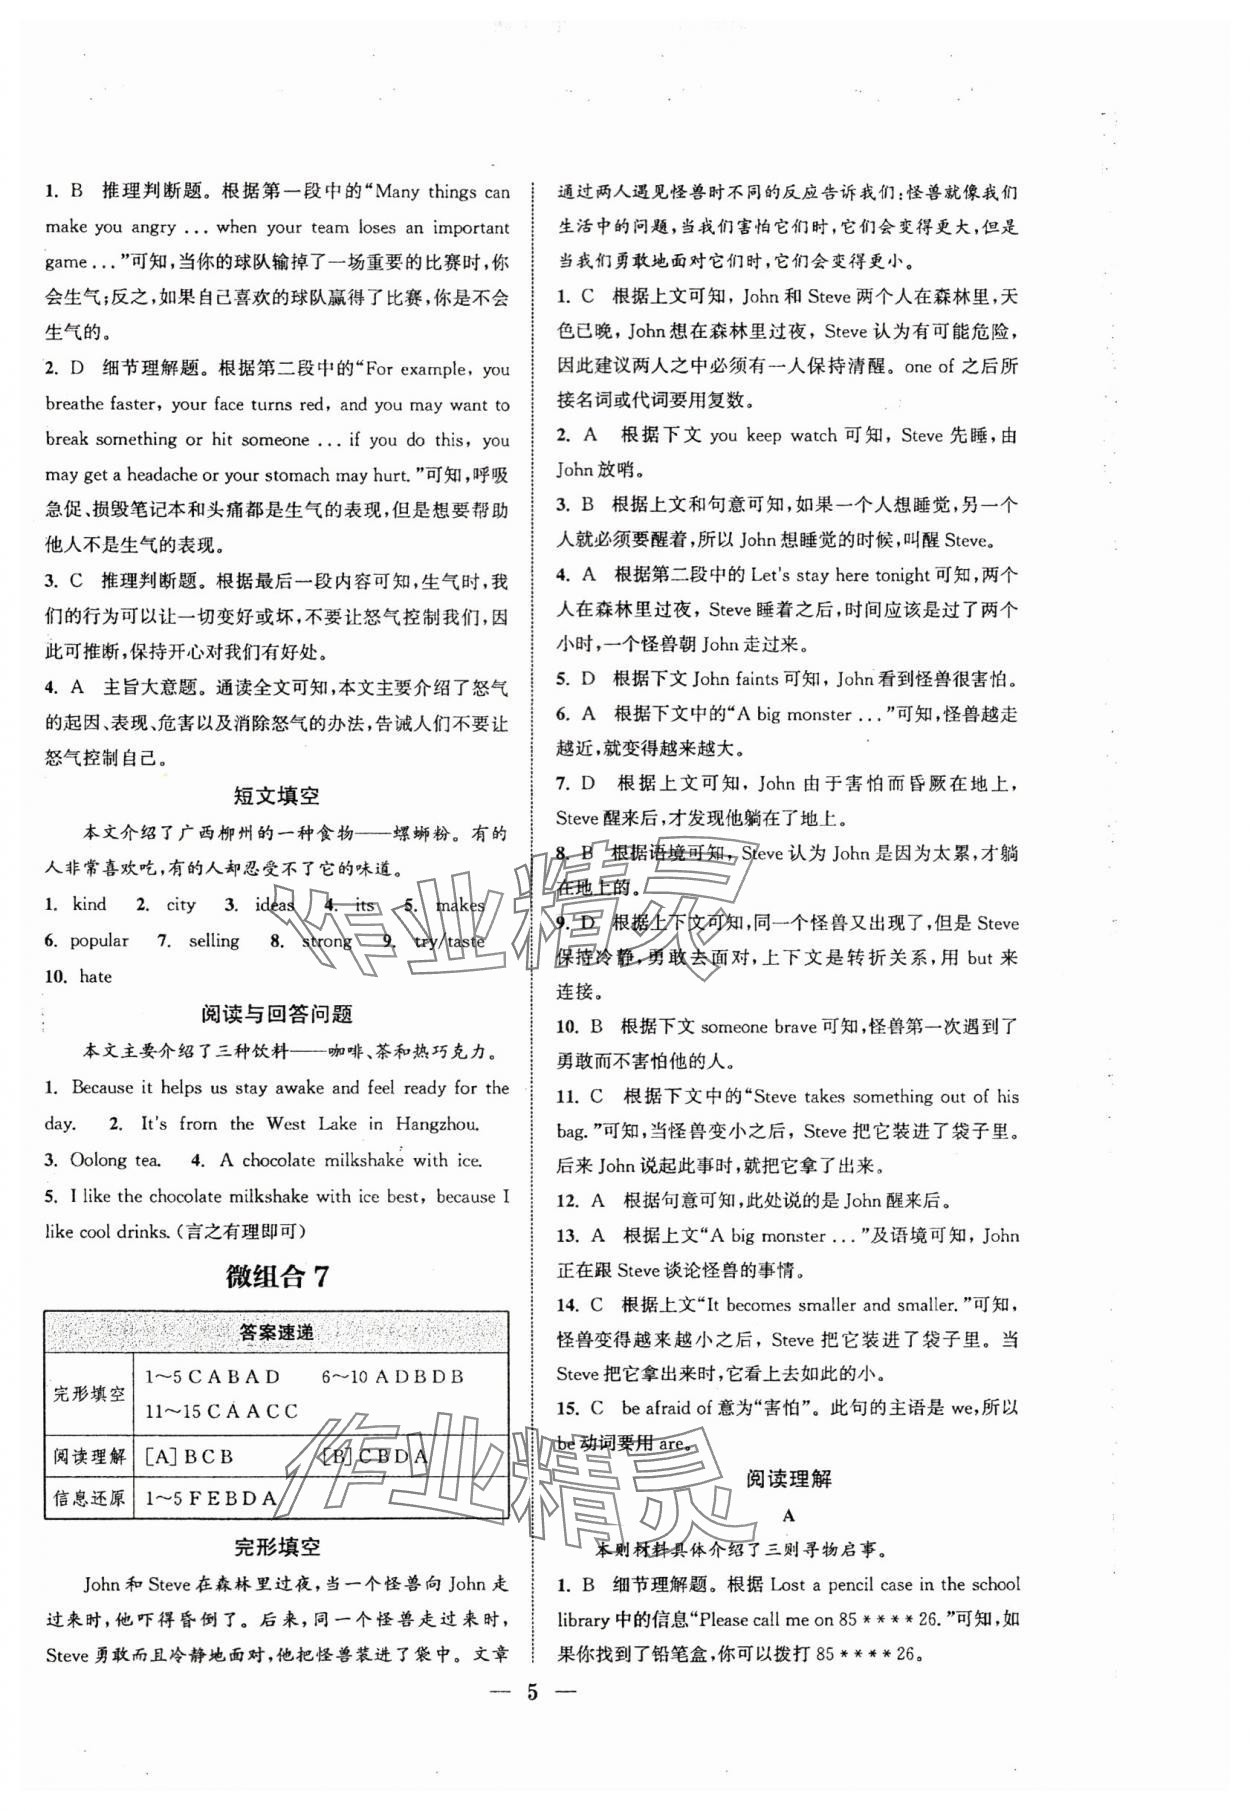 1. B 推理判断题。根据第一段中的“Many things can
make you angry ... when your team loses an important
game ...”可知,当你的球队输掉了一场重要的比赛时,你
会生气;反之,如果自己喜欢的球队赢得了比赛,你是不会
生气的。
2. D 细节理解题。根据第二段中的“For example, you
breathe faster, your face turns red, and you may want to
break something or hit someone ... if you do this, you
may get a headache or your stomach may hurt.”可知,呼吸
急促、损毁笔记本和头痛都是生气的表现,但是想要帮助
他人不是生气的表现。
3. C 推理判断题。根据最后一段内容可知,生气时,我
们的行为可以让一切变好或坏,不要让怒气控制我们,因
此可推断,保持开心对我们有好处。
4. A 主旨大意题。通读全文可知,本文主要介绍了怒气
的起因、表现、危害以及消除怒气的办法,告诫人们不要让
怒气控制自己。
短文填空
本文介绍了广西柳州的一种食物——螺蛳粉。有的
人非常喜欢吃,有的人却忍受不了它的味道。
1. kind 2. city 3. ideas 4. its 5. makes
6. popular 7. selling 8. strong 9. try/taste
10. hate
阅读与回答问题
本文主要介绍了三种饮料——咖啡、茶和热巧克力。
1. Because it helps us stay awake and feel ready for the
day. 2. It's from the West Lake in Hangzhou.
3. Oolong tea. 4. A chocolate milkshake with ice.
5. I like the chocolate milkshake with ice best, because I
like cool drinks.(言之有理即可)
微组合 7
答案速递
完形填空 1~5 C A B A D 6~10 A D B D B
11~15 C A A C C
阅读理解 [A] B C B [B] C B D A
信息还原 1~5 F E B D A
完形填空
John 和 Steve 在森林里过夜,当一个怪兽向 John 走
过来时,他吓得昏倒了。后来,同一个怪兽走过来时,
Steve 勇敢而且冷静地面对,他把怪兽装进了袋中。文章
通过两人遇见怪兽时不同的反应告诉我们:怪兽就像我们
生活中的问题,当我们害怕它们时,它们会变得更大,但是
当我们勇敢地面对它们时,它们会变得更小。
1. C 根据上文可知,John 和 Steve 两个人在森林里,天
色已晚,John 想在森林里过夜,Steve 认为有可能危险,
因此建议两人之中必须有一人保持清醒。one of 之后所
接名词或代词要用复数。
2. A 根据下文 you keep watch 可知,Steve 先睡,由
John 放哨。
3. B 根据上文和句意可知,如果一个人想睡觉,另一个
人就必须要醒着,所以 John 想睡觉的时候,叫醒 Steve。
4. A 根据第二段中的 Let's stay here tonight 可知,两个
人在森林里过夜,Steve 睡着之后,时间应该是过了两个
小时,一个怪兽朝 John 走过来。
5. D 根据下文 John faints 可知,John 看到怪兽很害怕。
6. A 根据下文中的“A big monster ...”可知,怪兽越走
越近,就变得越来越大。
7. D 根据上文可知,John 由于害怕而昏厥在地上,
Steve 醒来后,才发现他躺在地上。
8. B 根据语境可知,Steve 认为 John 是因为太累,才躺
在地上的。
9. D 根据上下文可知,同一个怪兽又出现了,但是 Steve
保持冷静,勇敢去面对,上下文是转折关系,用 but 来
连接。
10. B 根据下文 someone brave 可知,怪兽第一次遇到了
勇敢而不害怕他的人。
11. C 根据下文中的“Steve takes something out of his
bag.”可知,当怪兽变小之后,Steve 把它装进了袋子里。
后来 John 说起此事时,就把它拿了出来。
12. A 根据句意可知,此处说的是 John 醒来后。
13. A 根据上文“A big monster ...”及语境可知,John
正在跟 Steve 谈论怪兽的事情。
14. C 根据上文“It becomes smaller and smaller.”可知,
怪兽变得越来越小之后,Steve 把它装进了袋子里。当
Steve 把它拿出来时,它看上去如此的小。
15. C be afraid of 意为“害怕”。此句的主语是 we,所以
be 动词要用 are。
阅读理解
A
本则材料具体介绍了三则寻物启事。
1. B 细节理解题。根据 Lost a pencil case in the school
library 中的信息“Please call me on 85 * * * * 26.”可知,如
果你找到了铅笔盒,你可以拨打 85 * * * * 26。
— 5 —
作业精灵
作业精灵